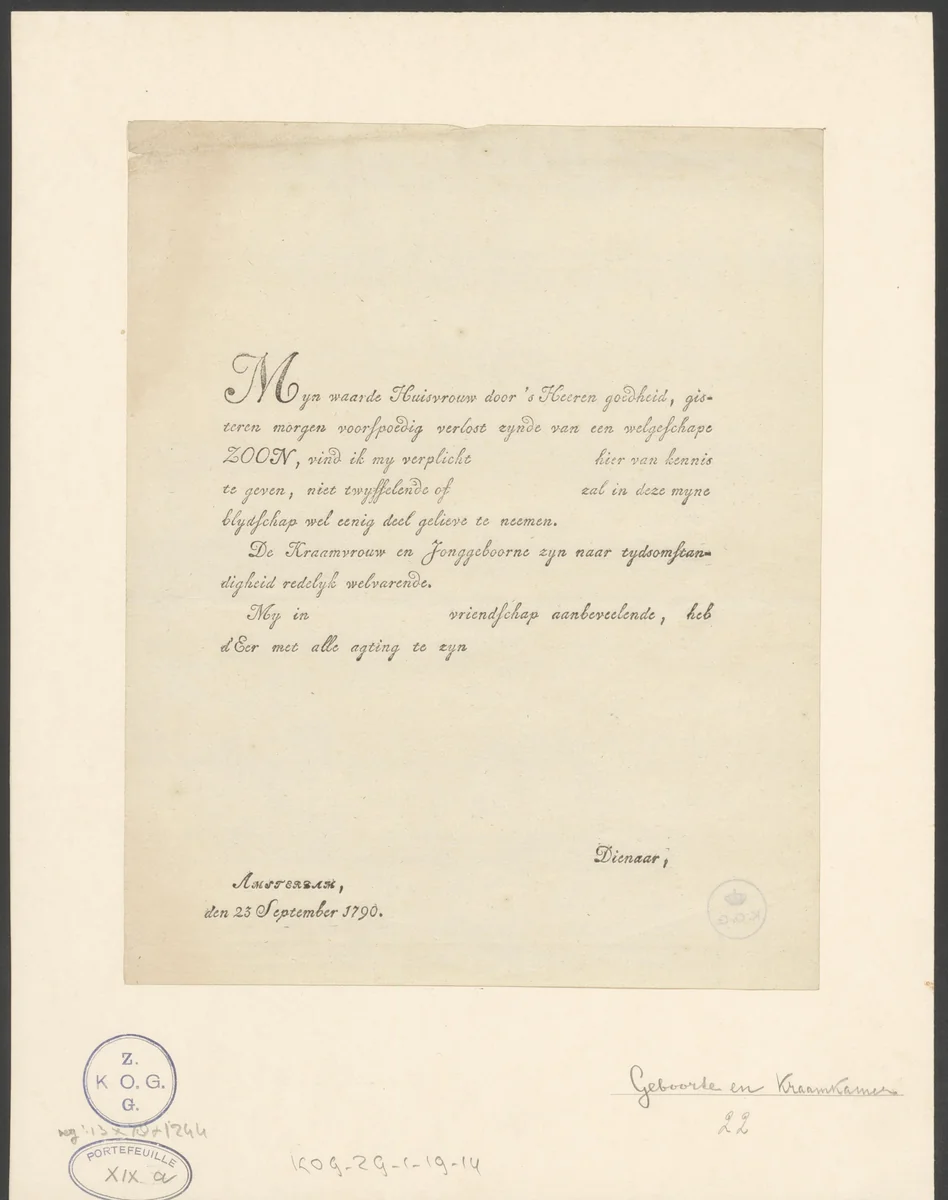 Myn waarde Huisvrouw door 's Heeren goedheid, gis-
teren morgen voorſpoedig verlost zynde van een welgeſchape
ZOON, vind ik my verplicht hier van kennis
te geven, niet twyffelende of zal in deze myne
blydſchap wel eenig deel gelieve te neemen.
De Kraamvrouw en Jonggeboorne zyn naar tydsomſtan-
digheid redelyk welvarende.
My in vriendſchap aanbeveelende, heb
d'Eer met alle agting te zyn
Dienaar,
AMSTERDAM,
den 23 September 1790.
K.O.G.
Z.
K O. G.
G.
PORTEFEUILLE
XIX a
KOG-ZG-1-19-14
Geboorte en Kraamkamer
22